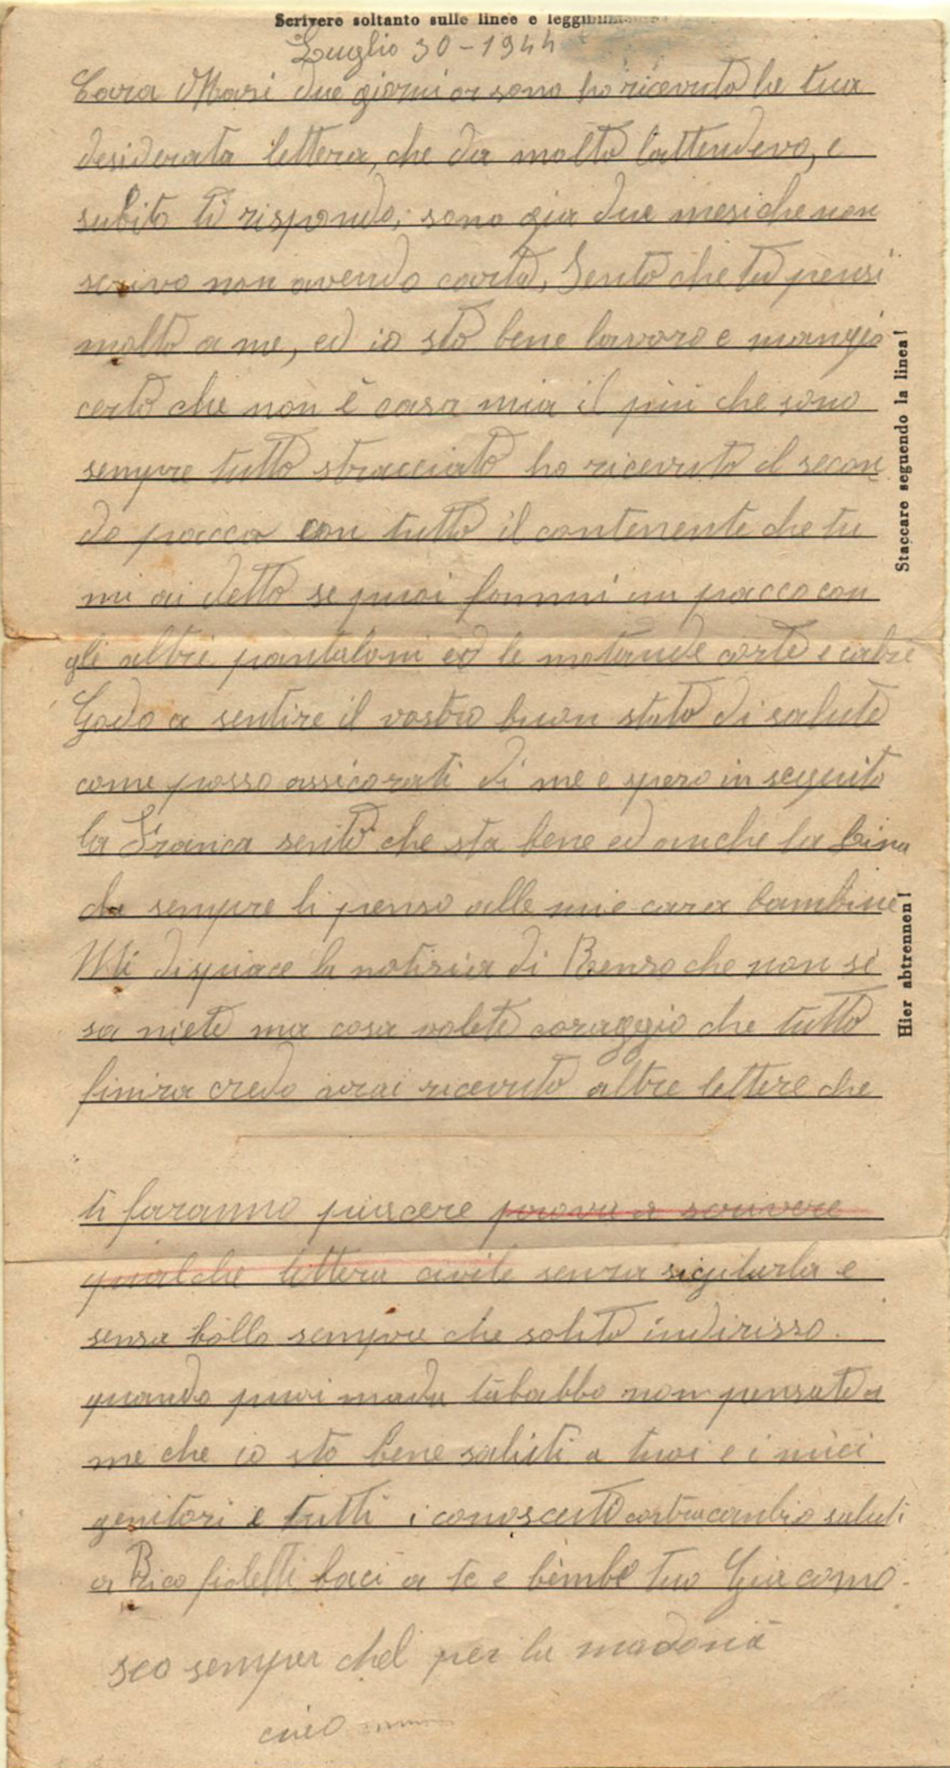 Scrivere soltanto sulle linee e
Luglio 30 - 1944
Cara Mari due giorni or sono ho ricevuto la tua
desiderata lettera, che da molto l'attendevo, e
subito ti rispondo; sono gia due mesi che non
scrivo non avendo carta, Sento che tu pensi
molto a me, ed io sto bene lavoro e mangio
certo che non è casa mia il più che sono
sempre tutto stracciato ho ricevuto il secon
do pacco con tutto il contenente che tu
mi ai detto se puoi fammi un pacco con
gli altri pantaloni ed le mutande corte e
Godo a sentire il vostro buon stato di salute
come posso assicorati di me e spero in seguito
la Franca sento che sta bene ed anche la Lina
che sempre li penso alle mie cara bambine
Mi dispiace la notizia di Renzo che non si
sa niete ma cosa volete coraggio che tutto
finira credo avrai ricevuto altre lettere che
ti faranno piacere prova a scrivere
qualche lettera civile senza sigilarla e
senza bollo sempre che solito indirisso.
quando puoi tabbabbo non pensate a
me che io sto bene saluti a tuoi e i miei
genitori e tutti i conosciuti contracambio saluti
a Rico baci a te e bimbe tuo Giacomo.
seo semper chel per la madona
ciao
Staccare seguendo la linea!
Hier abtrennen!